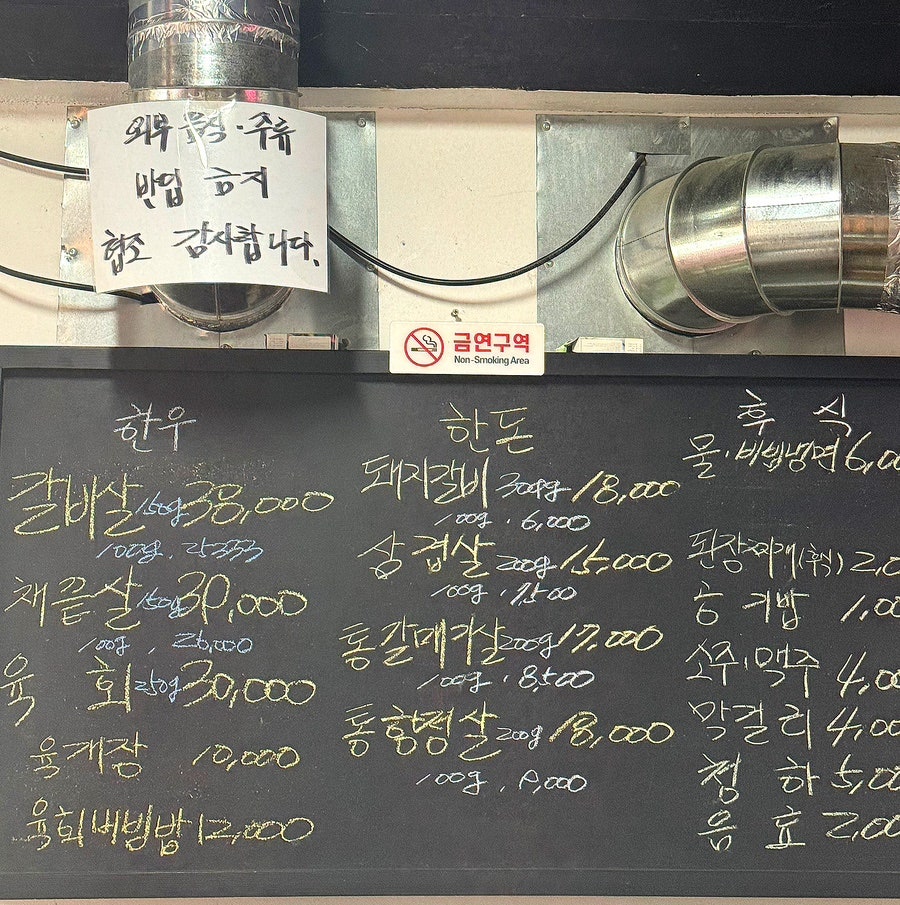 외부 음식·주류
반입 금지
협조 감사합니다.
금연구역
Non-Smoking Area
한우
갈비살 150g 38,000
100g. 25333
채끝살 150g 30,000
100g. 20,000
육 회 250g 30,000
육개장 10,000
육회비빔밥 12,000
한돈
돼지갈비 300g 18,000
100g. 6,000
삼겹살 200g 15,000
100g. 7,500
통갈매기살 200g 17,000
100g. 8,500
통항정살 200g 18,000
100g.
후 식
물·비빔냉면 6,00
된장찌개(후식) 2,0
공 기밥 1,00
소주, 맥주 4,00
막걸리 4,00
청 하 5,00
음 료 2,00